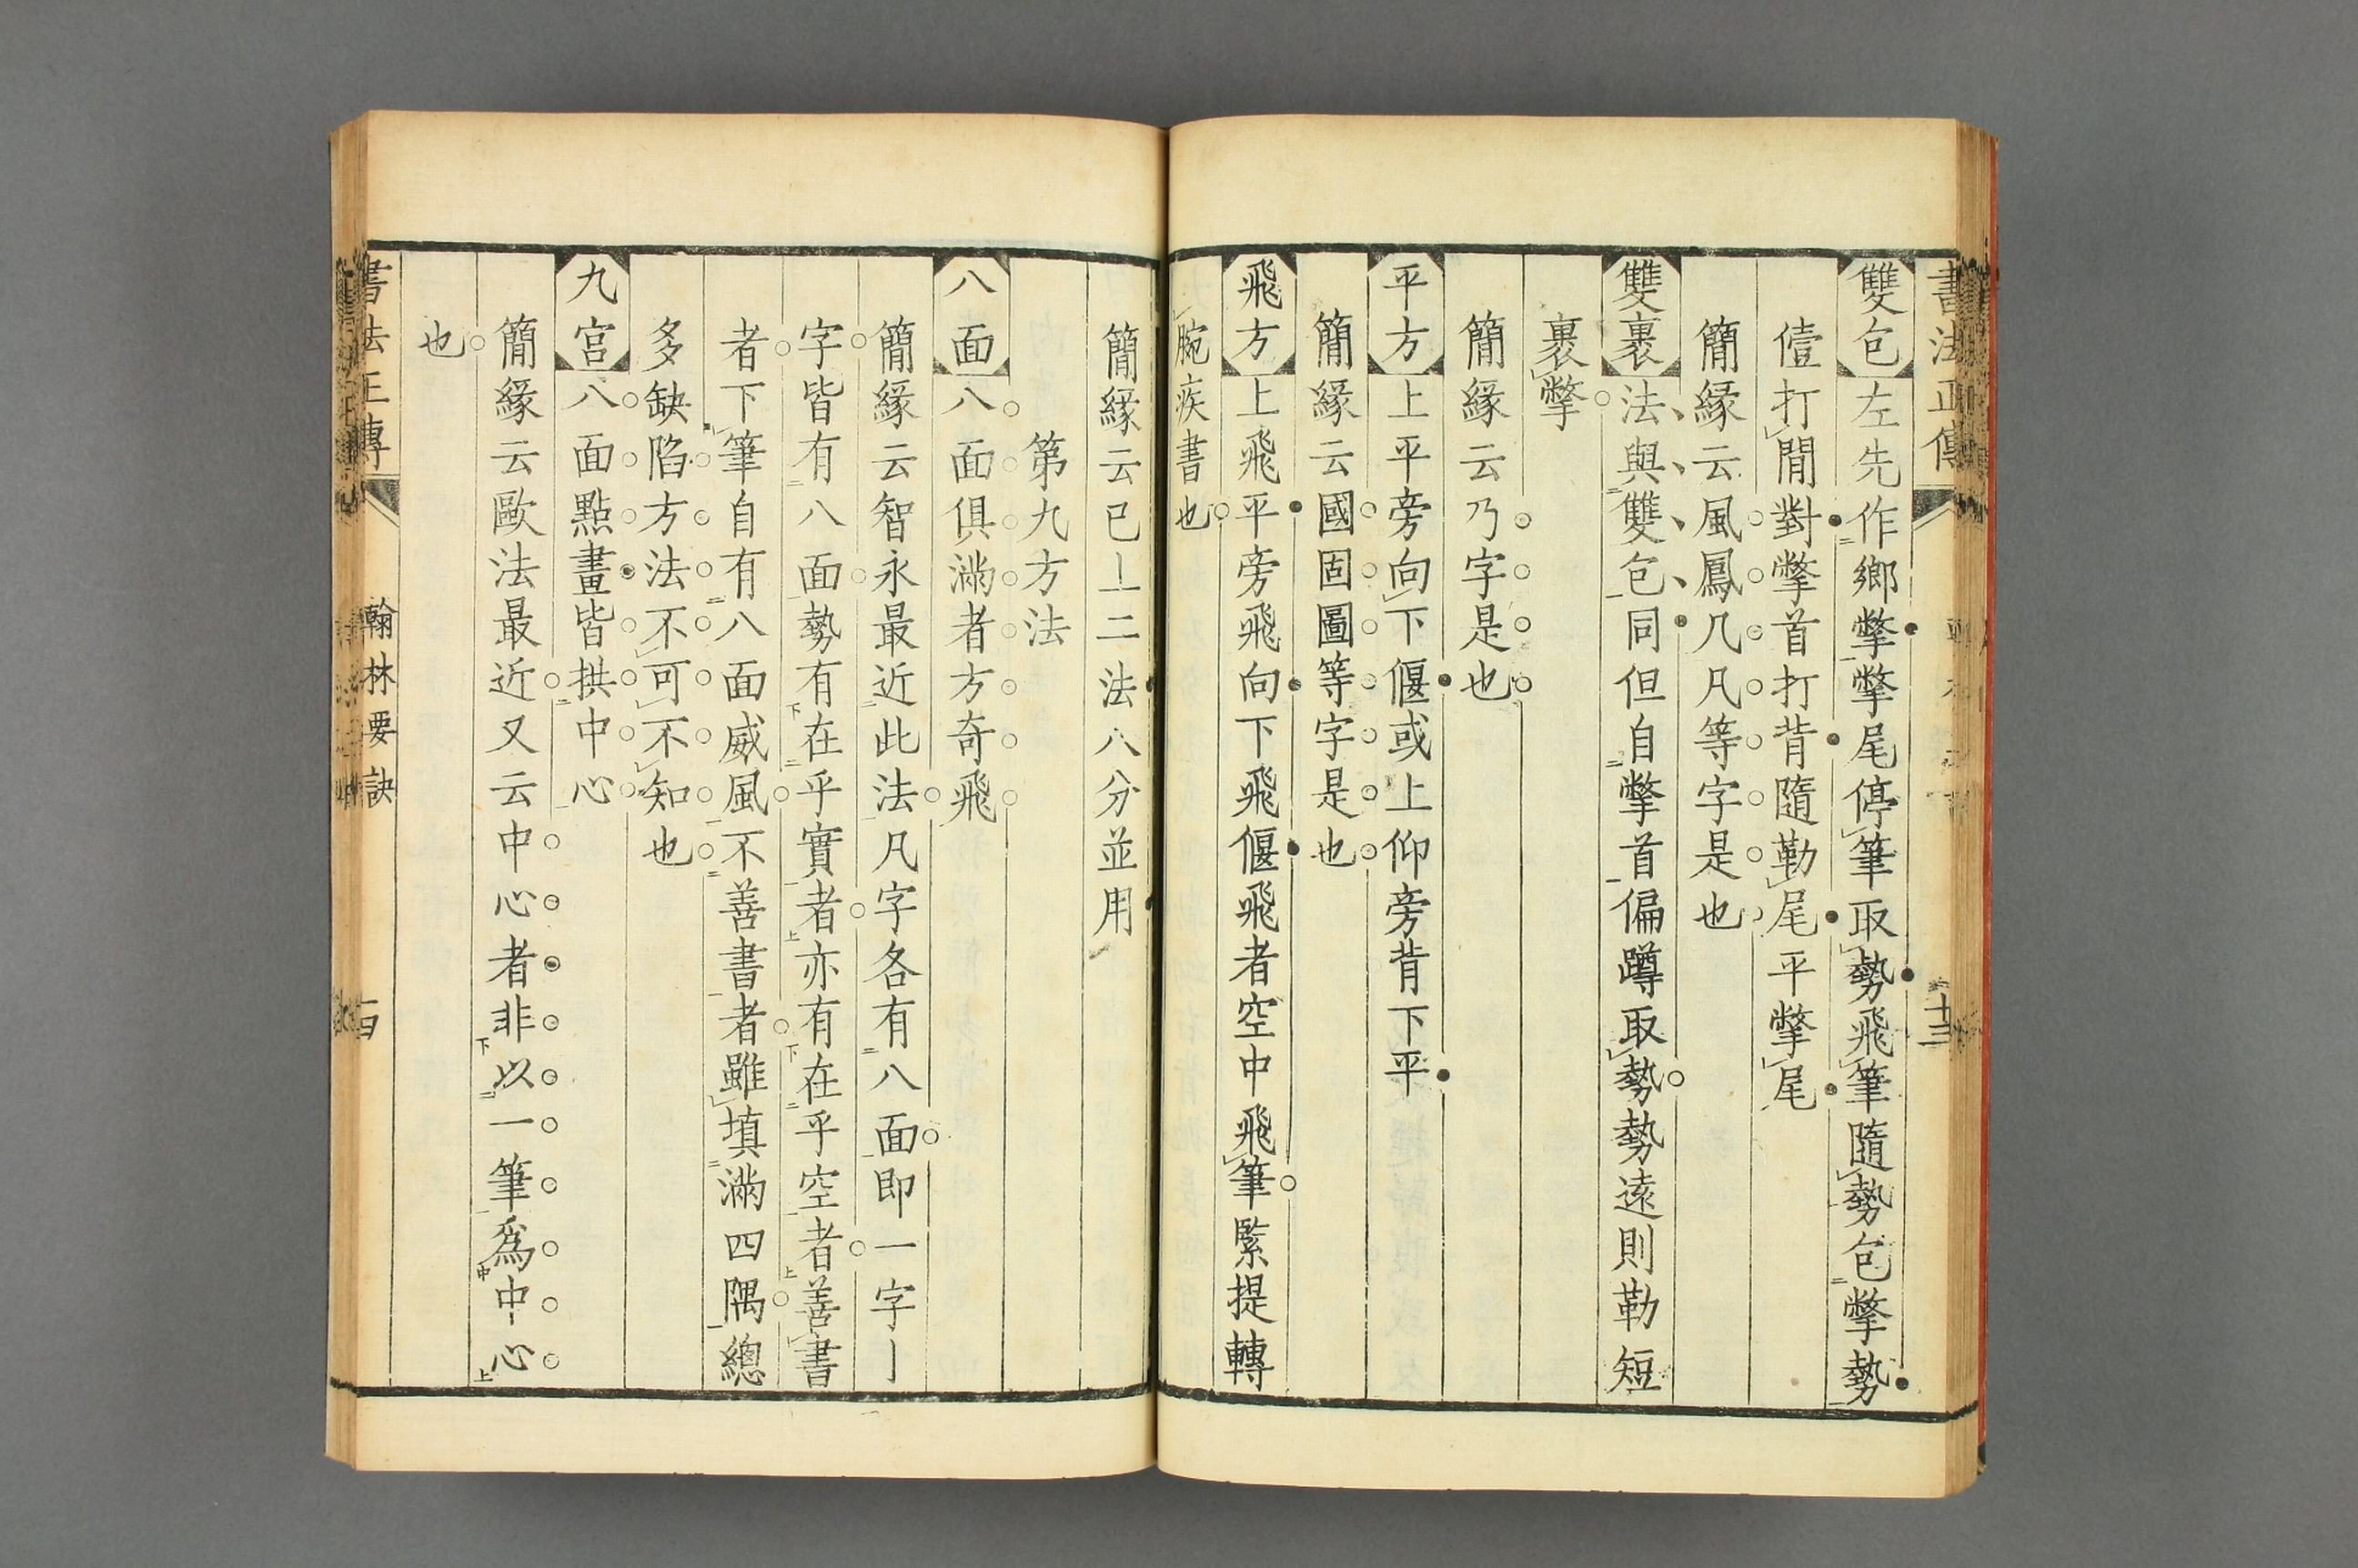 書法正傳
十三
雙包左先作鄉撆撆尾停筆取勢飛筆隨勢包撆勢
儓打閒對撆首打背隨勒尾平撆尾
簡緣云風鳳凡凡等字是也
雙裹法與雙包同但自撆首偏蹲取勢勢遠則勒短
裹撆
簡緣云乃字是也
平方上平旁向下偃或上仰旁背下平
簡緣云國固圖等字是也
飛方上飛平旁飛向下飛偃飛者空中飛筆緊提轉
腕疾書也
簡緣云已上二法八分並用
第九方法
八面八面俱滿者方奇飛
簡緣云智永最近此法凡字各有八面即一字一
字皆有八面勢有在乎實者亦有在乎空者善書
者下筆自有八面威風不善書者雖填滿四隅總
多缺陷方法不可不知也
九宫八面點畫皆拱中心
簡緣云歐法最近又云中心者非以一筆為中心
也
書法正傳
翰林要訣